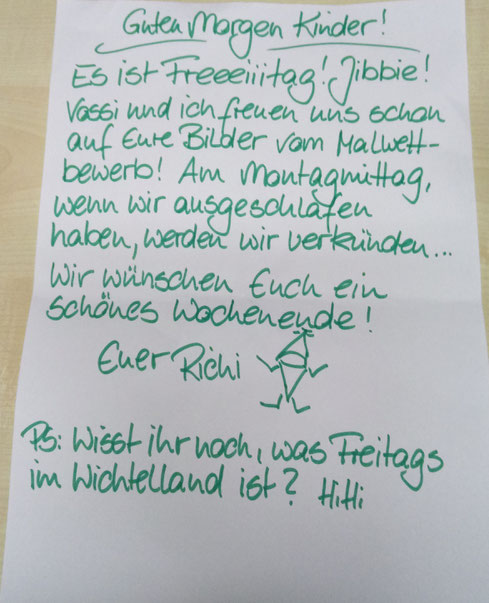 Guten Morgen Kinder!
Es ist Freeeiiitag! Jibbie!
Vossi und ich freuen uns schon
auf Eure Bilder vom Malwett-
bewerb! Am Montagmittag,
wenn wir ausgeschlafen
haben, werden wir verkünden...
Wir wünschen Euch ein
schönes Wochenende!
Euer Richi
Ps: Wisst ihr noch, was Freitags
im Wichtelland ist? HiHi